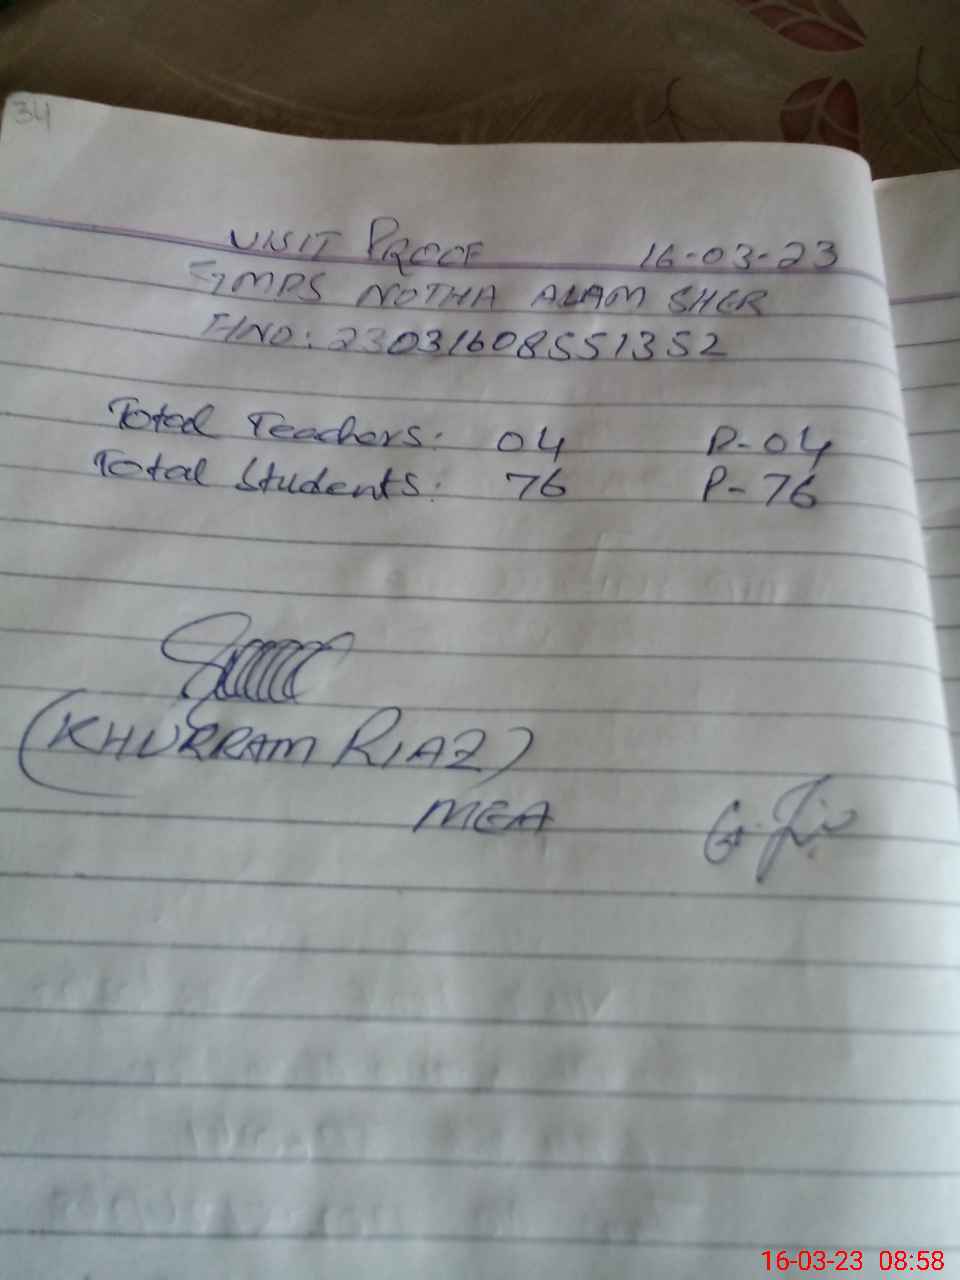 34
VISIT PROOF 16-03-23
GMPS NOTHA ALAM SHER
FINO: 23031608551352
Total Teachers: 04 P-04
Total Students: 76 P-76
(KHURRAM RIAZ)
MEA
16-03-23 08:58